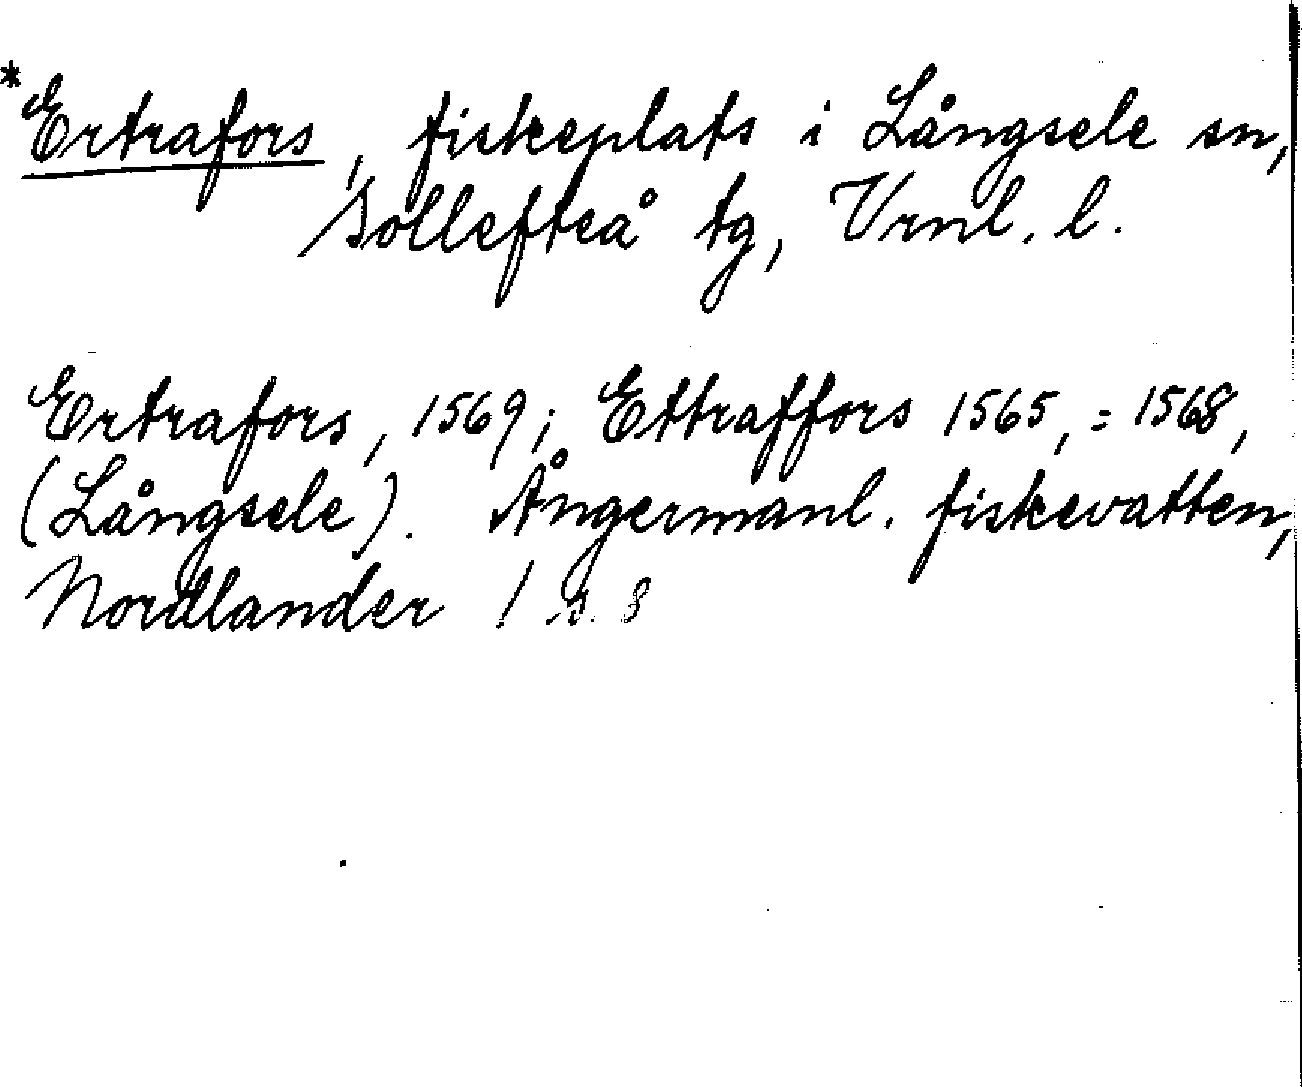 *Ertrafors, fiskeplats i Långsele sn,
Sollefteå tg, Vrnl. l.
Ertrafors, 1569; Ettraffors 1565, = 1568,
(Långsele). Ångermanl. fiskevatten,
Nordlander 1 s. 8